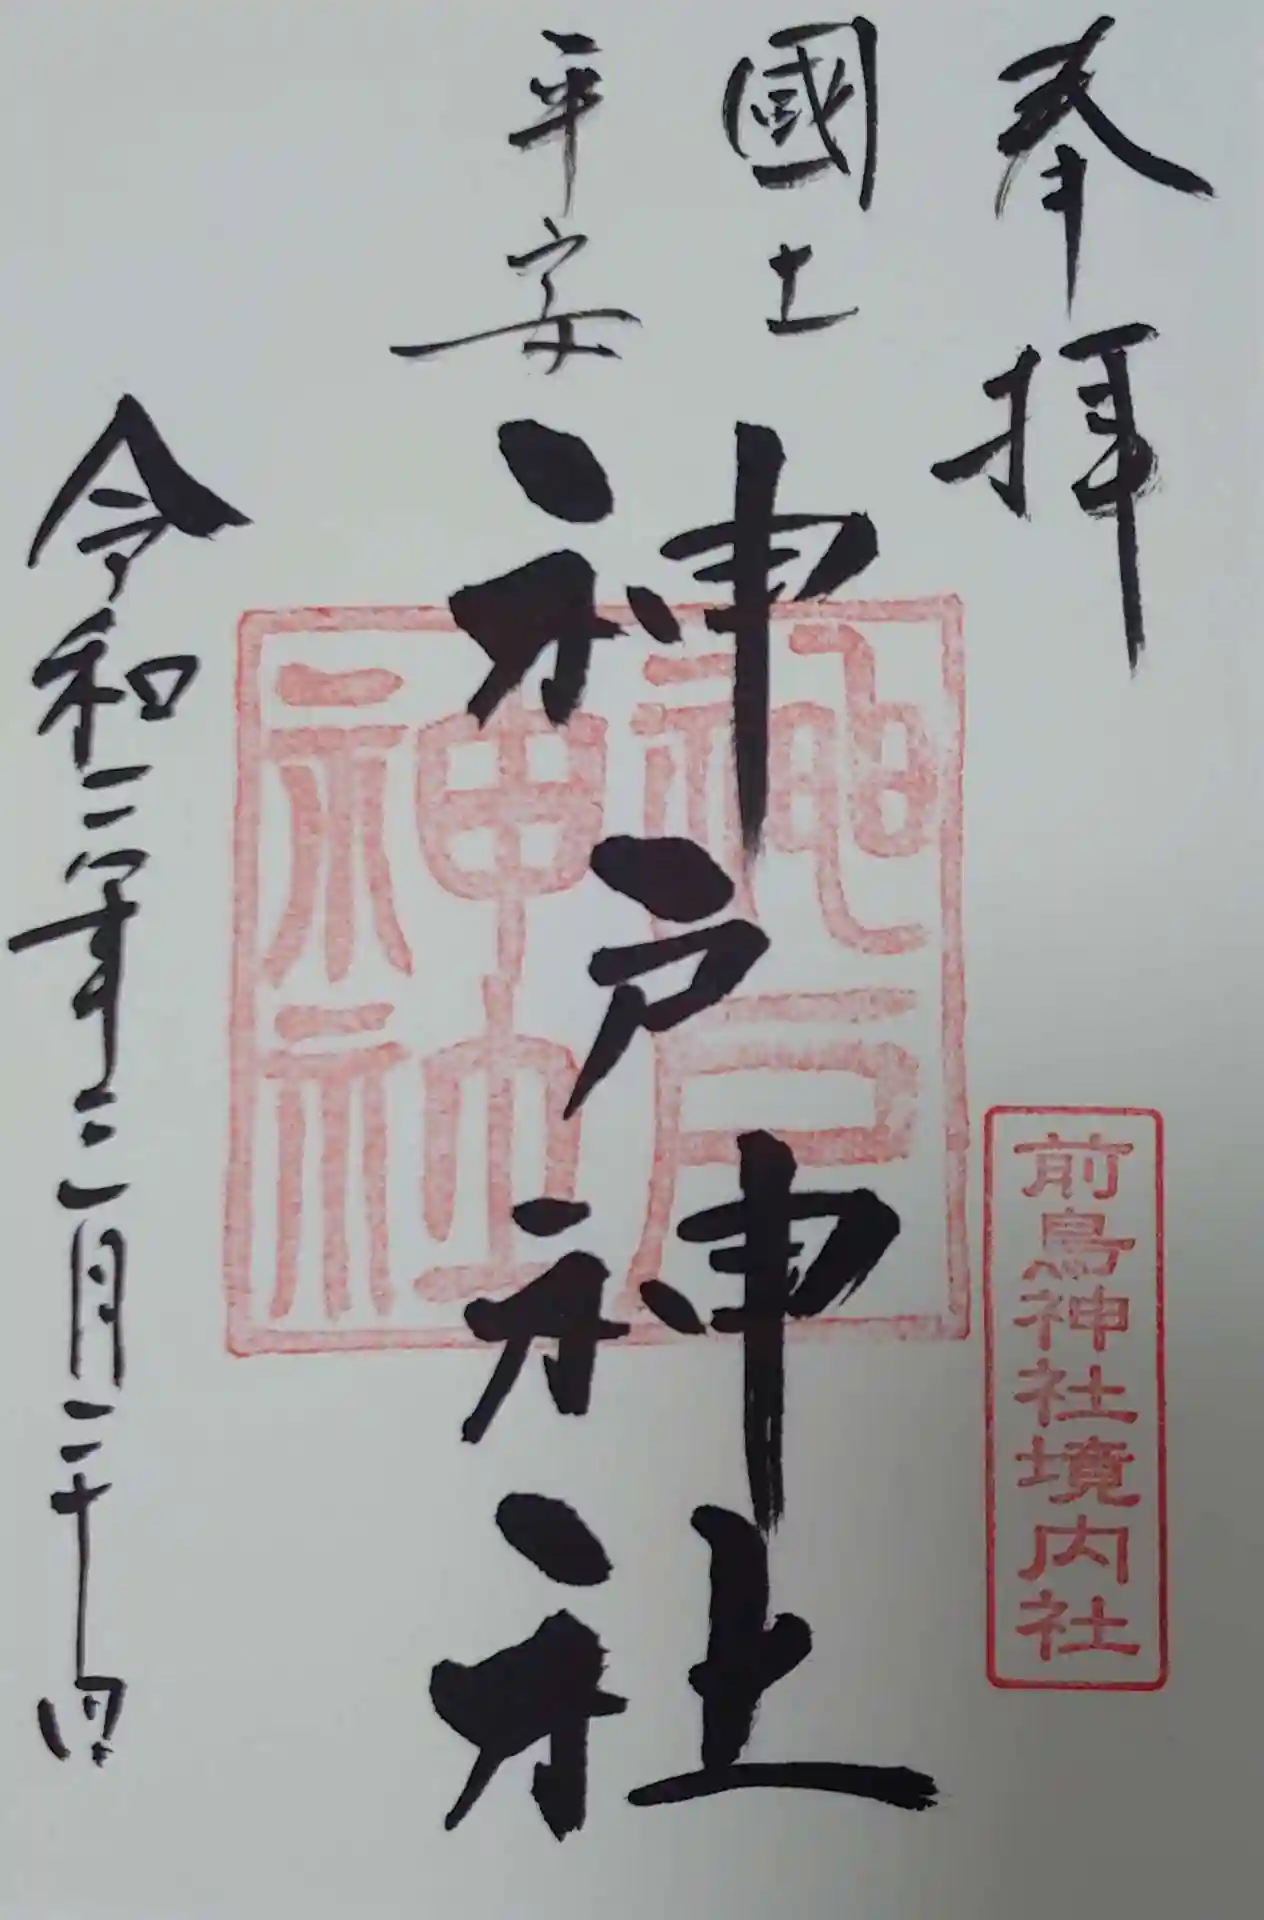 奉拝
國土
平安
神戸神社
神戸
神社
前鳥神社境内社
令和二年三月二十日